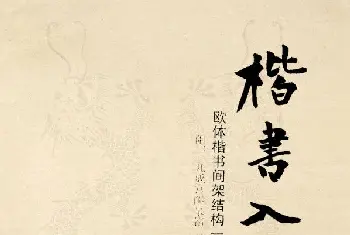 楷書入
欧体楷书间架结构